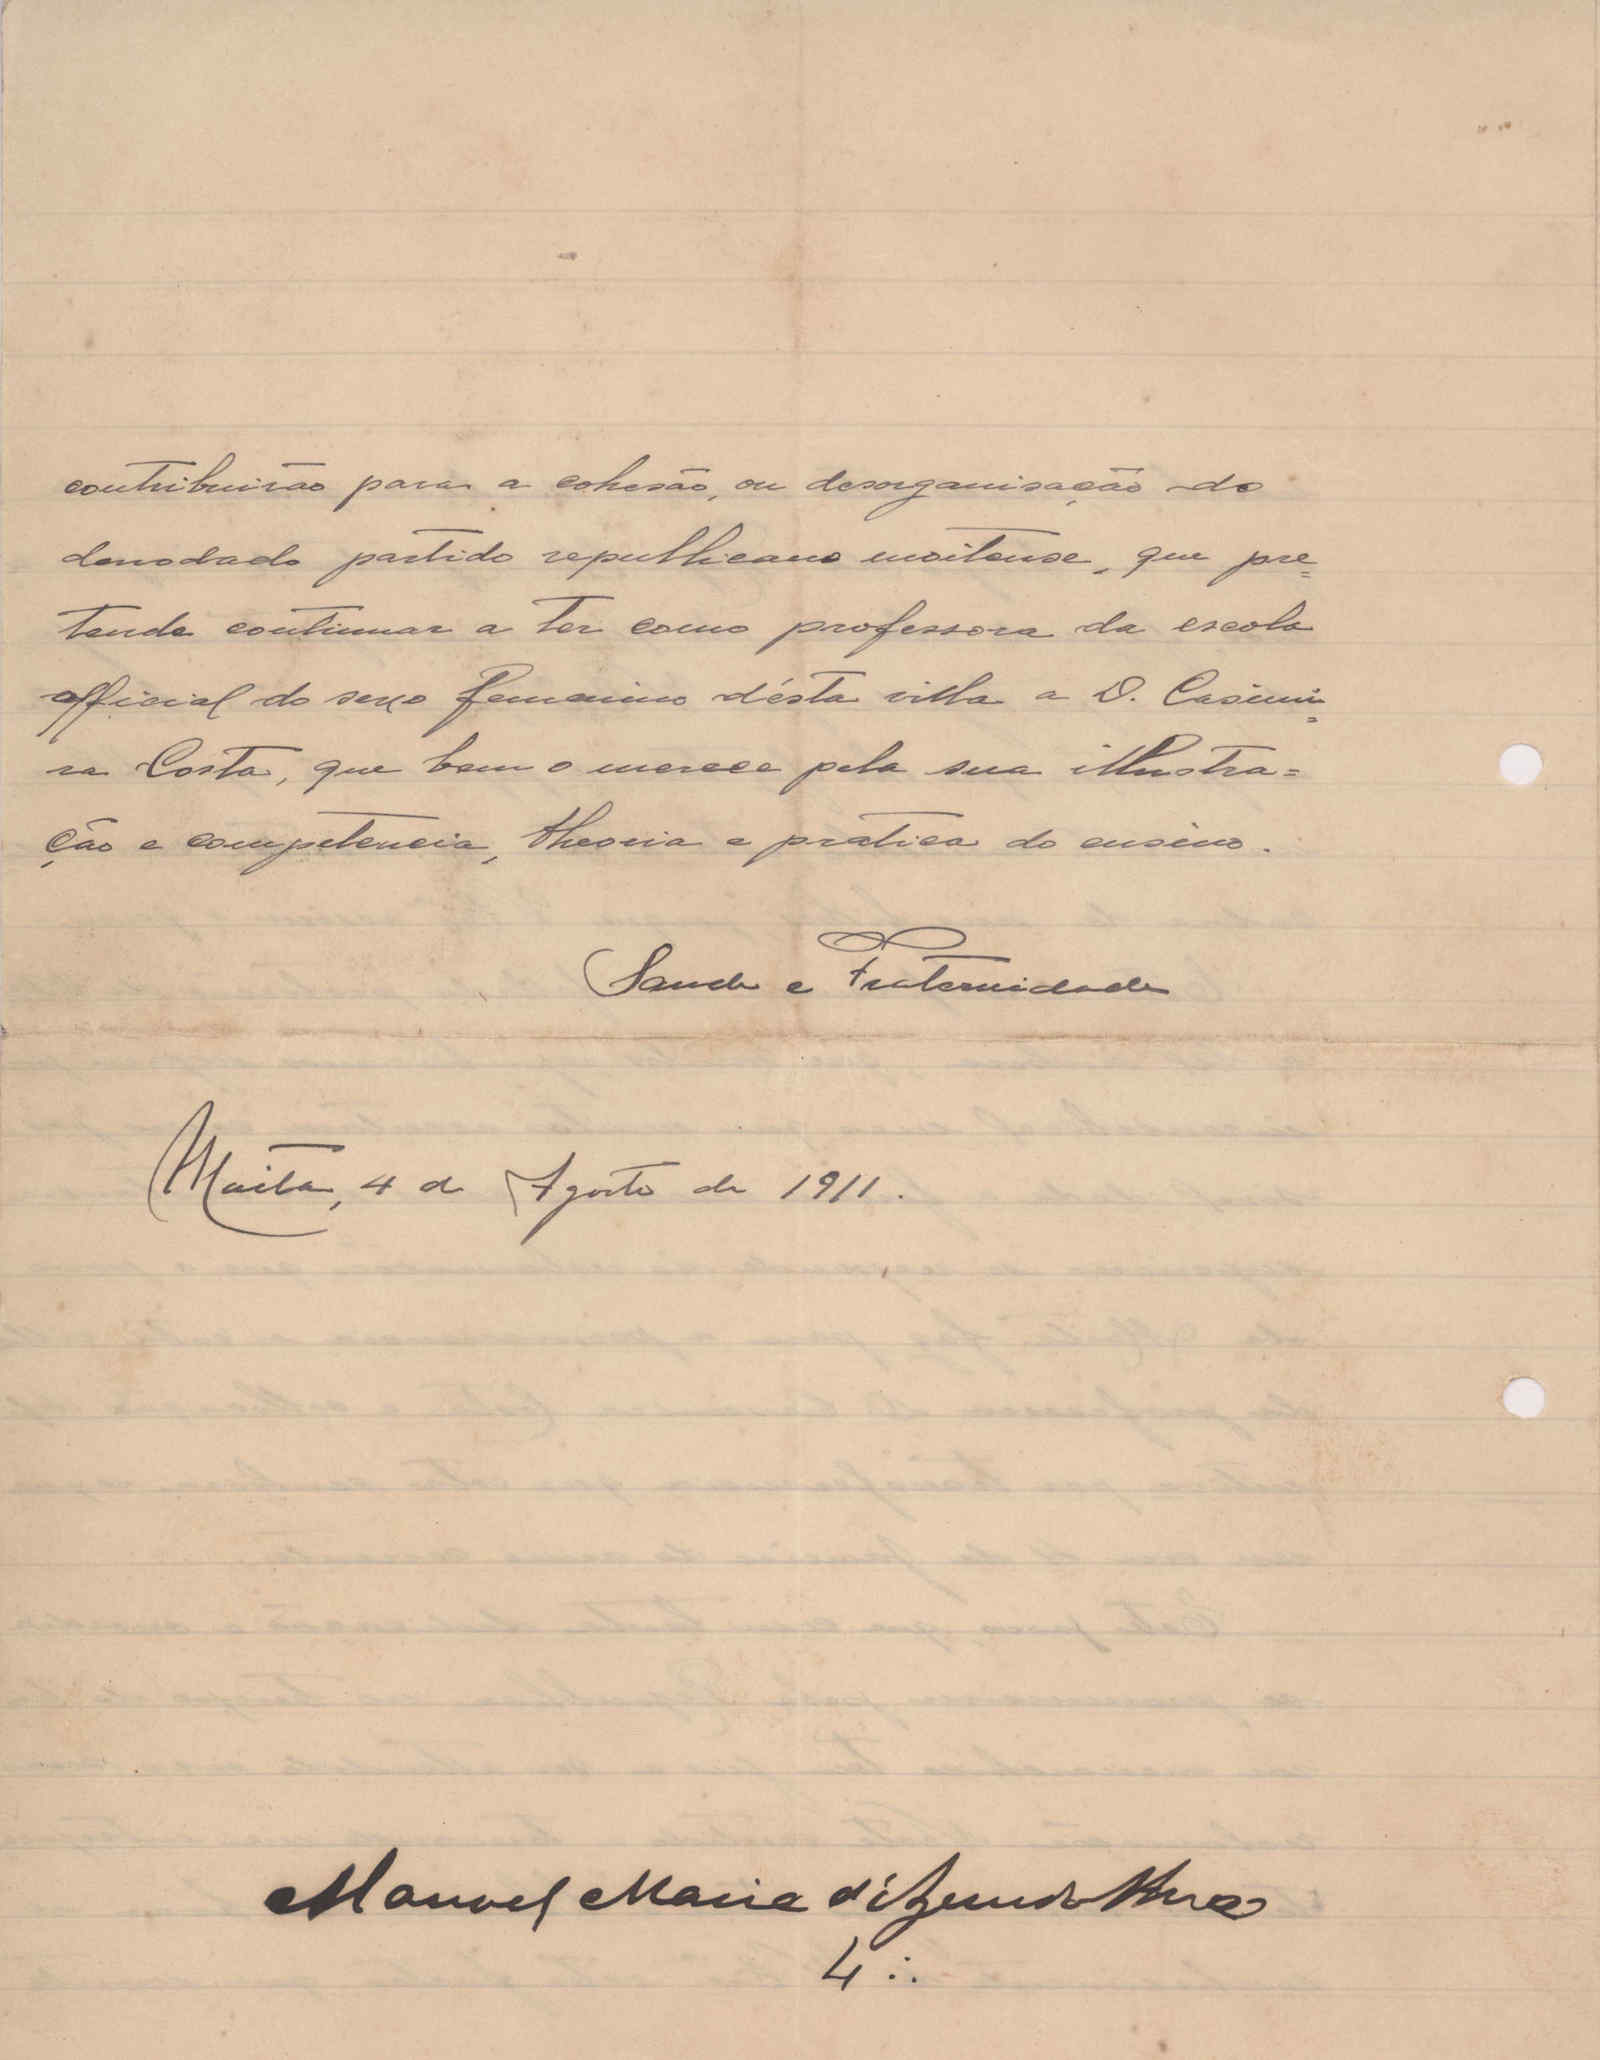 contribuirão para a cohesão, ou desorganisação do
denodado partido republicano moitense, que pre=
tende continuar a ter como professora da escola
official do sexo femenino désta villa a D. Casimi=
ra Costa, que bem o merece pela sua illustra=
ção e competencia, theoria e pratica do ensino.
Saude e Fraternidade
Moita, 4 de Agosto de 1911.
Manoel Maria d'Azevedo
4 ∴